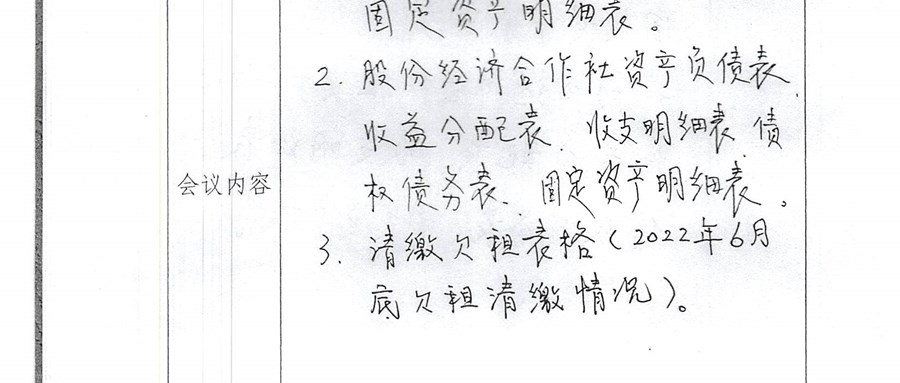 固定资产明细表。
2. 股份经济合作社资产负债表、
收益分配表、收支明细表、债
会议内容
权债务表、固定资产明细表。
3. 清缴欠租表格(2022年6月
底欠租清缴情况)。